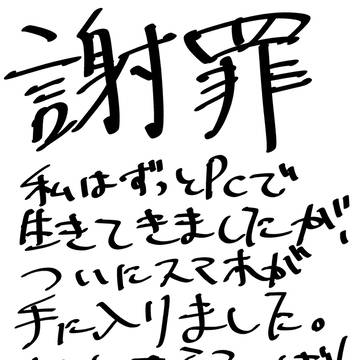 謝罪
私はずっとPCで
生きてきましたが、
ついにスマホが
手に入りました。